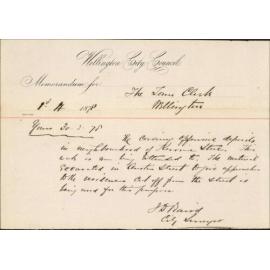 Wellington City Council
Memorandum for
The Town Clerk
Wellington
1st 1878
Yours 30. 78
The covering offensive deposits
in neighbourhood of Street. This
work is now being attended to. The material
excavated in Street to give approaches
to the cut off from the street is
being used for this purpose
J D Baird
City Surveyor